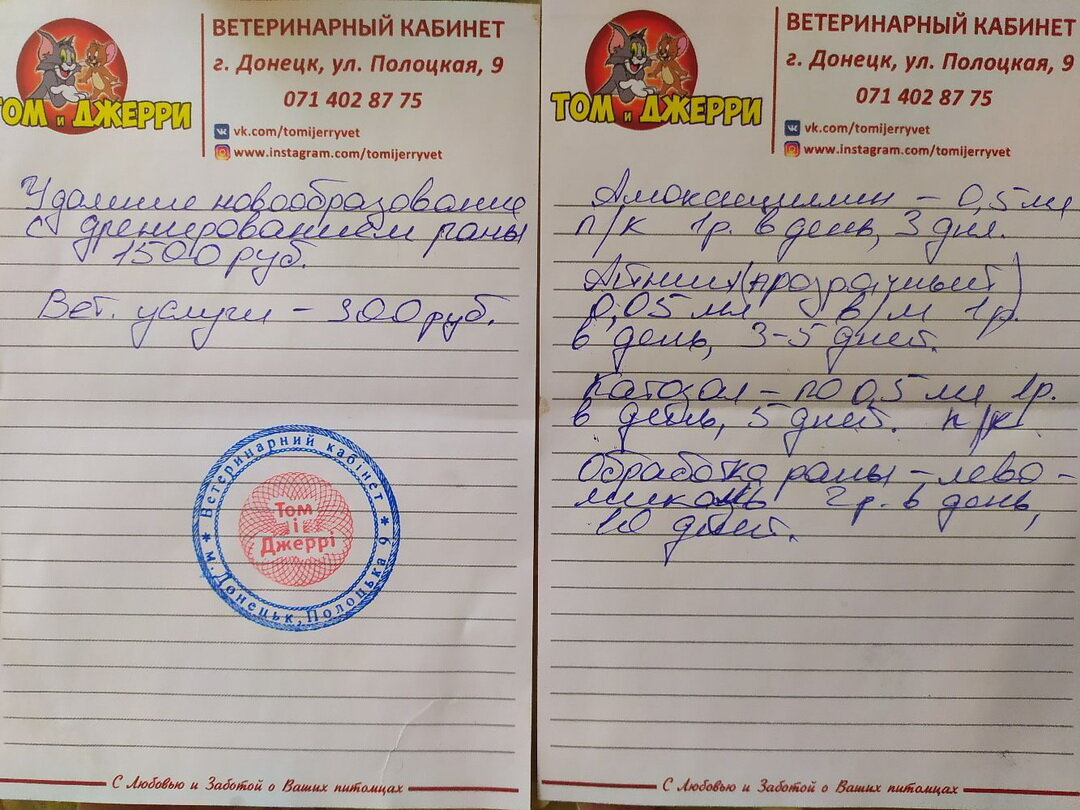 ТОМ и ДЖЕРРИ
ВЕТЕРИНАРНЫЙ КАБИНЕТ
г. Донецк, ул. Полоцкая, 9
071 402 87 75
vk.com/tomijerryvet
www.instagram.com/tomijerryvet
Удаление новообразование
с дренированием раны
1500 руб.
Вет. услуги - 300 руб.
* Ветеринарний кабінет *
м. Донецьк, Полоцька 9
Том
і
Джеррі
С Любовью и Заботой о Ваших питомцах
ТОМ и ДЖЕРРИ
ВЕТЕРИНАРНЫЙ КАБИНЕТ
г. Донецк, ул. Полоцкая, 9
071 402 87 75
vk.com/tomijerryvet
www.instagram.com/tomijerryvet
Амоксициллин - 0,5 мл
п/к 1р. в день, 3 дня.
(прозрачный)
0,05 мл в/м 1р.
в день, 3-5 дней.
Катозал - по 0,5 мл 1р.
в день, 5 дней. п/к
Обработка раны - лево-
миколь 2р. в день,
10 дней.
С Любовью и Заботой о Ваших питомцах